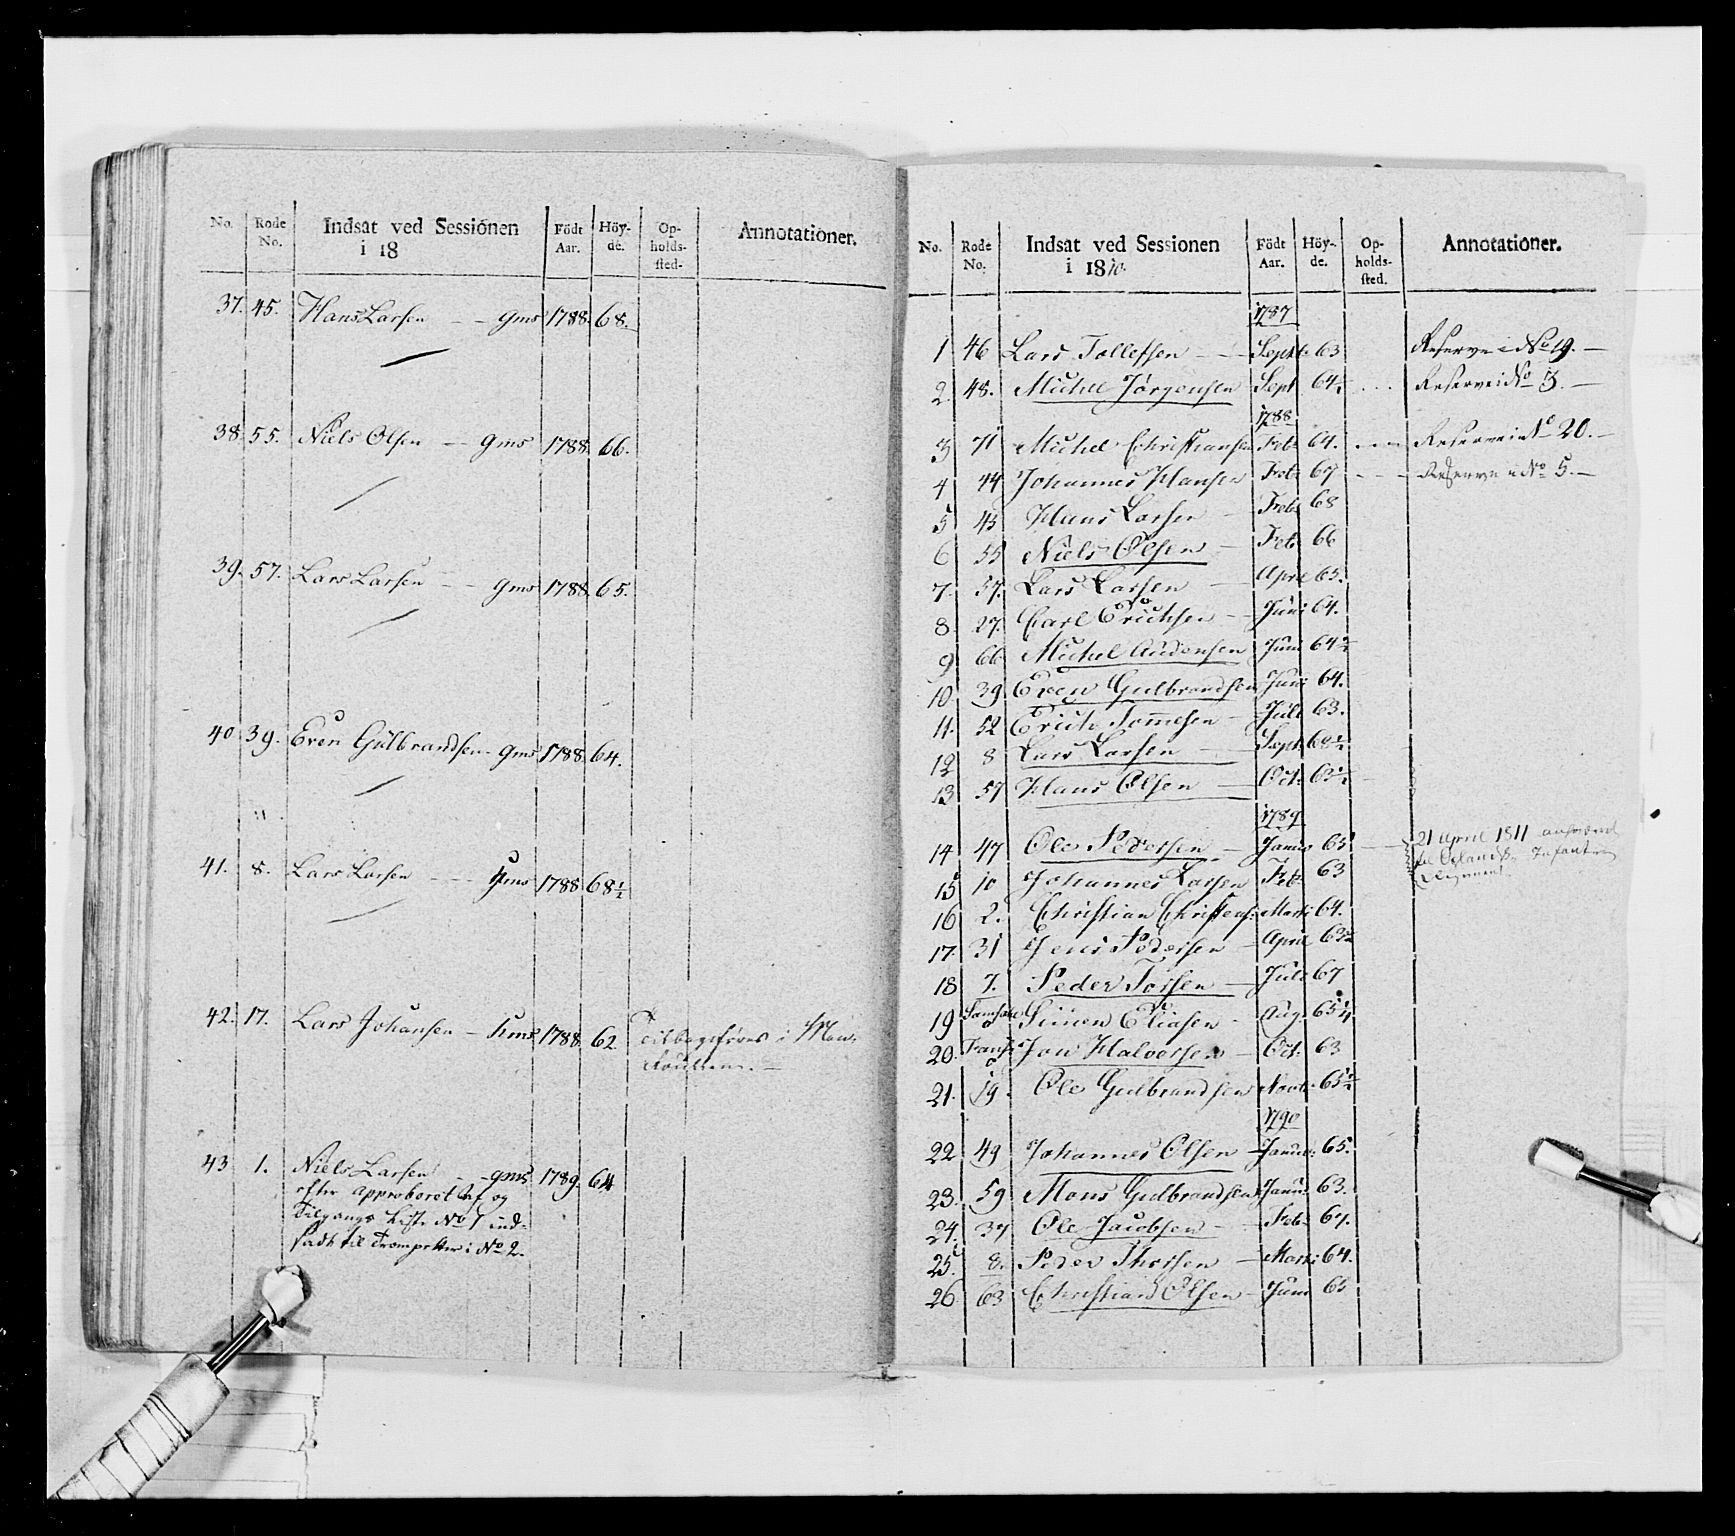 No. Rode No. Indsat ved Sessionen i 18 Födt Aar. Höy-de. Op-holds-sted. Annotationer.
37. 45. Hans Larsen - - gms 1788. 68.
38. 55. Niels Olsen - gms 1788. 66.
39. 57. Lars Larsen - - gms 1788. 65.
40 39. Even Gulbrandsen - gms 1788. 64.
41. 8. Lars Larsen - - - gms 1788 68½
42. 17. Lars Johansen - 1788. 62. Tilbageføres i
43 1. Niels Larsen - gms 1789. 64
efter approberet Af og
Tilgangs Liste No 1 ind-
sadt til Trompetter i No 2.
No. Rode No. Indsat ved Sessionen i 1810. Födt Aar. Höy-de. Op-holds-sted. Annotationer.
1787
1 46 Lars Tollefsen - - Sept. 63 Reserve i No 19. -
2. 48. Michel Jörgensen Sept 64½ - - - Reserve i No 13. -
1788
3 71 Michel Christiansen Feb. 64. - - - Reserve i No 20. -
4 44 Johannes Hansen Feb. 67 - - - Reserve i No 5. -
5 45 Hans Larsen - Feb. 68
6 55 Niels Olsen - Feb. 66
7. 57. Lars Larsen - April 65.
8. 27. Carl Erichsen - Juni 64.
9 66 Michel Audensen Juni 64½
10 39 Even Gulbrandsen Juni 64.
11. 52 Erich Tomesen - Juli 63.
12 8 Lars Larsen - Sept. 68½
13 57 Hans Olsen - Oct. 63½
1789
14 47 Ole Pedersen - Janu. 65 - - 21 april 1811
Infanterie
Regiment.
15 10 Johannes Larsen Feb. 63
16 2. Christian Christens: Marti 64.
17. 31 Jens Pedersen - April 63½
18 7. Peder Torsen - Juli 67
19 Simen Eliasen - Aug. 65¼
20. Jon Halvorsen - Oct. 63
21. 19. Ole Gulbrandsen Novb. 65½
1790
22 49 Johannes Olsen - Janu: 65.
23. 59 Mons Gulbrandsen Janu: 63.
24. 37 Ole Jacobsen - - Feb. 67.
25. 8. Peder Thorsen - Marti 64.
26 63 Christian Olsen - Juni 65